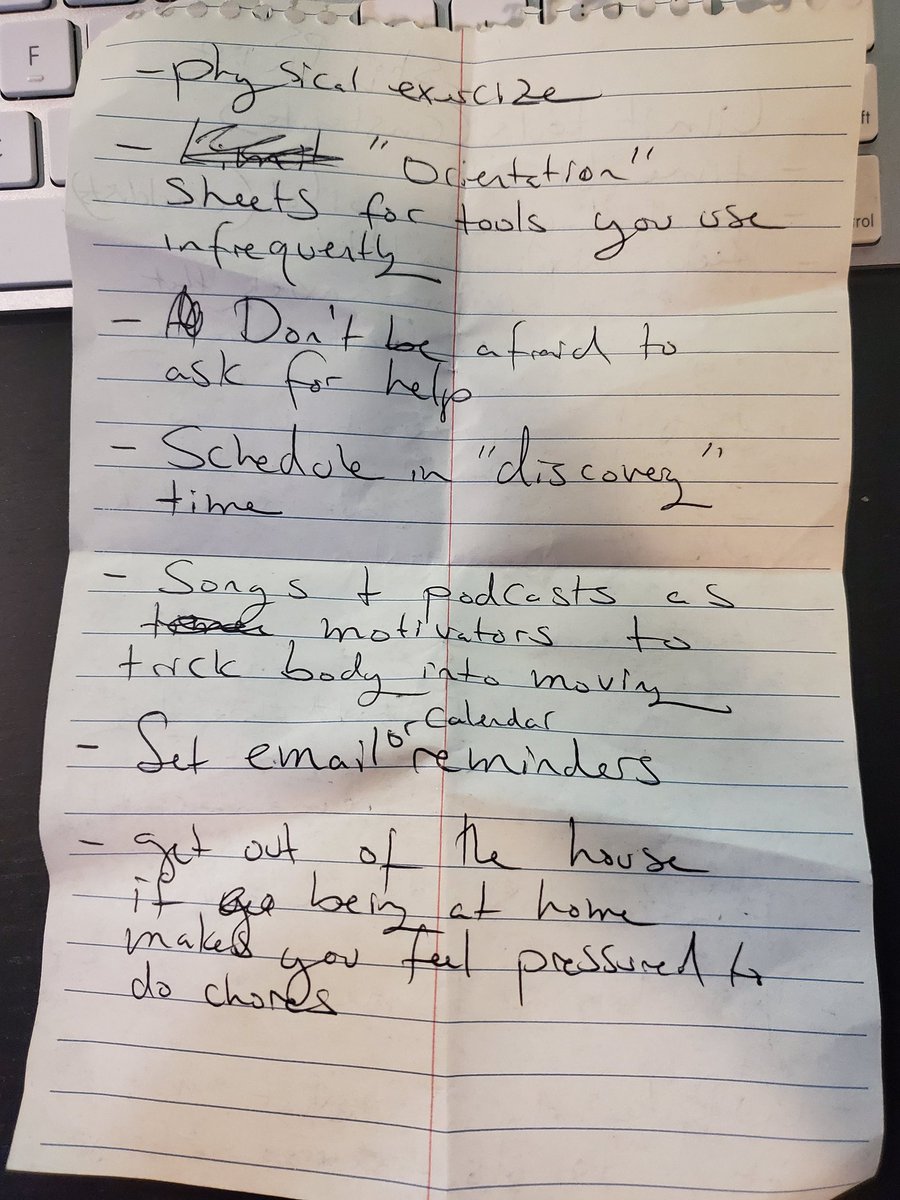 F
ft
rol
- physical exercize
- "Orientation"
sheets for tools you use
infrequently
- Don't be afraid to
ask for help
- Schedule in "discovery"
time
- Songs + podcasts as
motivators to
trick body into moving
or Calendar
- Set email reminders
- get out of the house
if being at home
makes you feel pressured to
do chores